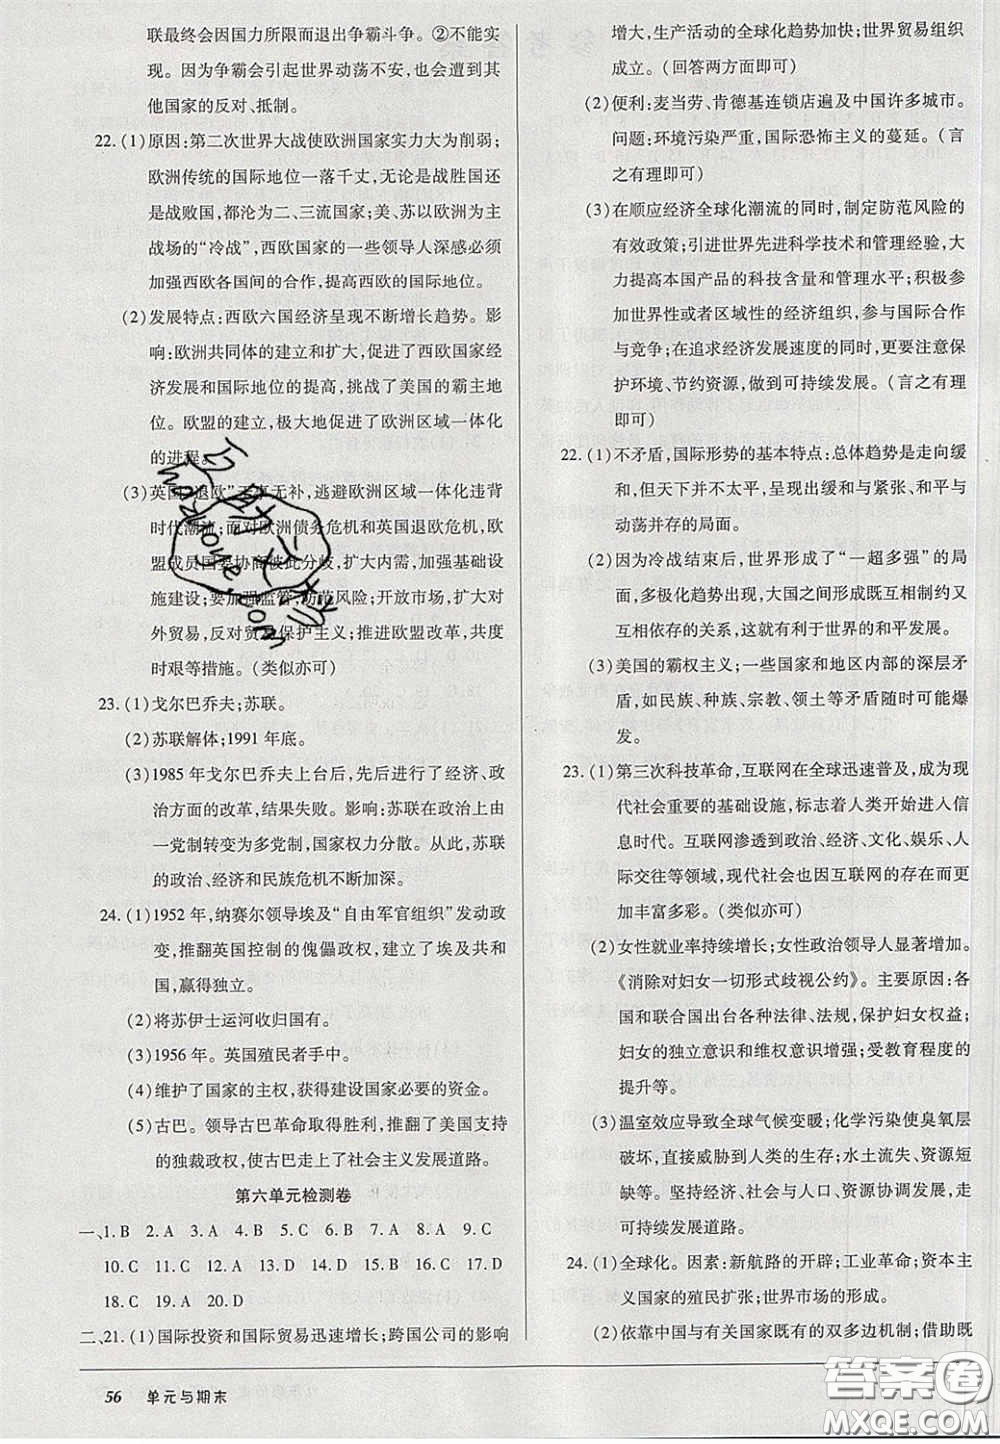 联最终会因国力所限而退出争霸斗争。②不能实
现。因为争霸会引起世界动荡不安,也会遭到其
他国家的反对、抵制。
22.(1)原因:第二次世界大战使欧洲国家实力大为削弱;
欧洲传统的国际地位一落千丈,无论是战胜国还
是战败国,都沦为二、三流国家;美、苏以欧洲为主
战场的“冷战”,西欧国家的一些领导人深感必须
加强西欧各国间的合作,提高西欧的国际地位。
(2)发展特点:西欧六国经济呈现不断增长趋势。影
响:欧洲共同体的建立和扩大,促进了西欧国家经
济发展和国际地位的提高,挑战了美国的霸主地
位。欧盟的建立,极大地促进了欧洲区域一体化
的进程。
(3)英国“退欧”于事无补,逃避欧洲区域一体化违背
时代潮流;面对欧洲债务危机和英国退欧危机,欧
盟成员国要协商彼此分歧,扩大内需,加强基础设
施建设;要加强监管,防范风险;开放市场,扩大对
外贸易,反对贸易保护主义;推进欧盟改革,共度
时艰等措施。(类似亦可)
23.(1)戈尔巴乔夫;苏联。
(2)苏联解体;1991 年底。
(3)1985 年戈尔巴乔夫上台后,先后进行了经济、政
治方面的改革,结果失败。影响:苏联在政治上由
一党制转变为多党制,国家权力分散。从此,苏联
的政治、经济和民族危机不断加深。
24.(1)1952 年,纳赛尔领导埃及“自由军官组织”发动政
变,推翻英国控制的傀儡政权,建立了埃及共和
国,赢得独立。
(2)将苏伊士运河收归国有。
(3)1956 年。英国殖民者手中。
(4)维护了国家的主权,获得建设国家必要的资金。
(5)古巴。领导古巴革命取得胜利,推翻了美国支持
的独裁政权,使古巴走上了社会主义发展道路。
第六单元检测卷
一、1. B 2. A 3. A 4. B 5. C 6. B 7. A 8. A 9. C
10. C 11. D 12. C 13. B 14. A 15. C 16. C 17. D
18. C 19. A 20. D
二、21.(1)国际投资和国际贸易迅速增长;跨国公司的影响
56 单元与期末
增大,生产活动的全球化趋势加快;世界贸易组织
成立。(回答两方面即可)
(2)便利:麦当劳、肯德基连锁店遍及中国许多城市。
问题:环境污染严重,国际恐怖主义的蔓延。(言
之有理即可)
(3)在顺应经济全球化潮流的同时,制定防范风险的
有效政策;引进世界先进科学技术和管理经验,大
大提高本国产品的科技含量和管理水平;积极参
加世界性或者区域性的经济组织,参与国际合作
与竞争;在追求经济发展速度的同时,更要注意保
护环境、节约资源,做到可持续发展。(言之有理
即可)
22.(1)不矛盾,国际形势的基本特点:总体趋势是走向缓
和,但天下并不太平,呈现出缓和与紧张、和平与
动荡并存的局面。
(2)因为冷战结束后,世界形成了“一超多强”的局
面,多极化趋势出现,大国之间形成既互相制约又
互相依存的关系,这就有利于世界的和平发展。
(3)美国的霸权主义;一些国家和地区内部的深层矛
盾,如民族、种族、宗教、领土等矛盾随时可能爆
发。
23.(1)第三次科技革命,互联网在全球迅速普及,成为现
代社会重要的基础设施,标志着人类开始进入信
息时代。互联网渗透到政治、经济、文化、娱乐、人
际交往等领域,现代社会也因互联网的存在而
更加丰富多彩。(类似亦可)
(2)女性就业率持续增长;女性政治领导人显著增加。
《消除对妇女一切形式歧视公约》。主要原因:各
国和联合国出台各种法律、法规,保护妇女权益;
妇女的独立意识和维权意识增强;受教育程度的
提升等。
(3)温室效应导致全球气候变暖;化学污染使臭氧层
破坏,直接威胁到人类的生存;水土流失、资源短
缺等。坚持经济、社会与人口、资源协调发展,走
可持续发展道路。
24.(1)全球化。因素:新航路的开辟;工业革命;资本主
义国家的殖民扩张;世界市场的形成。
(2)依靠中国与有关国家既有的双多边机制;借助既
答案圈
MXQE.COM